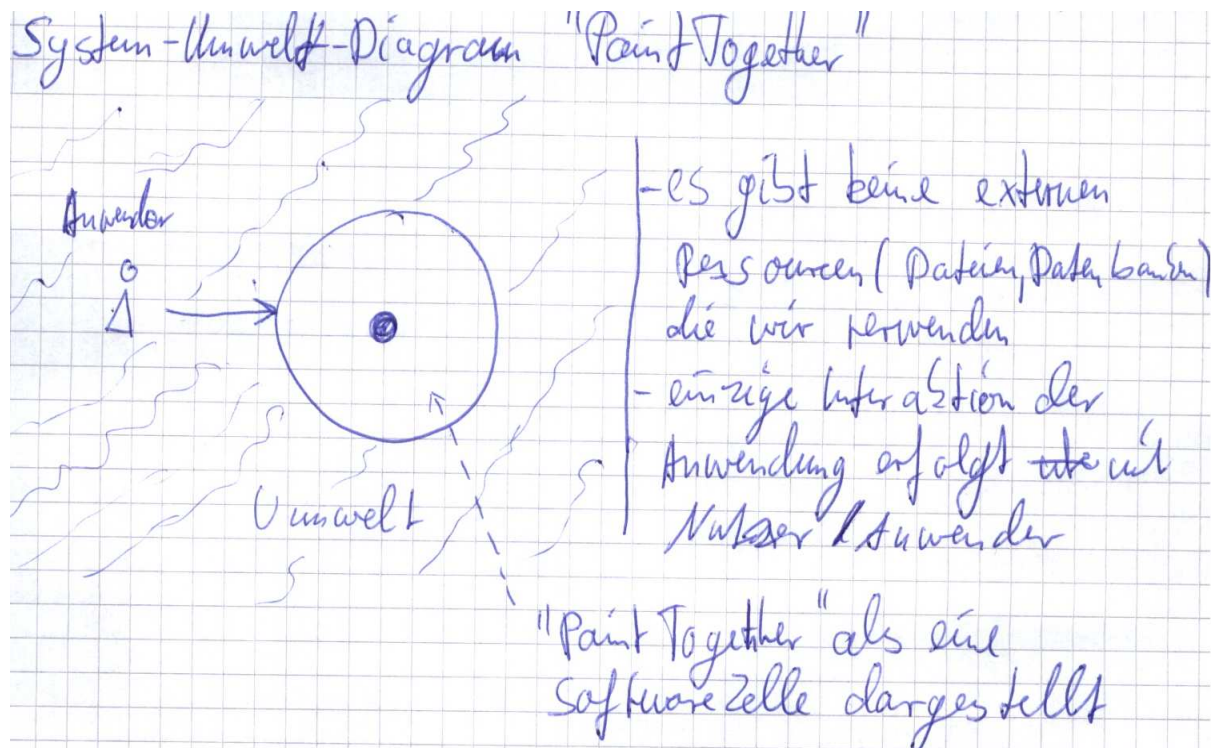 System-Umwelt-Diagram "PaintTogether"
Anwender
- es gibt keine externen
Ressourcen (Dateien, Datenbanken)
die wir verwenden
- einzige Interaktion der
Anwendung erfolgt mit
Nutzer / Anwender
Umwelt
"PaintTogether" als eine
Softwarezelle dargestellt